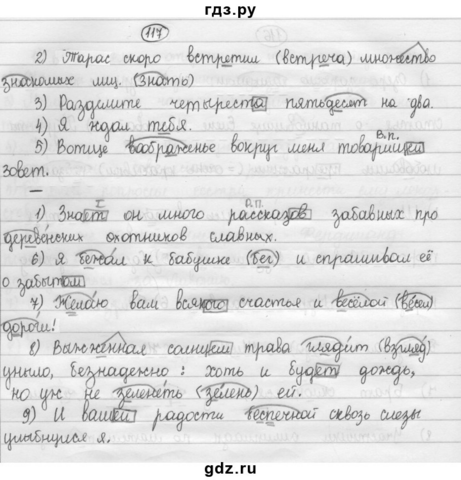 гдз.ру
117
2) Тарас скоро встретил (встреча) множество
знакомых лиц. (знать)
3) Разделите четыреста пятьдесят на два.
4) Я ждал тебя.
В.п.
5) Вотще воображенье вокруг меня товарищей
зовет.
I В.п.
1) Знает он много рассказов забавных про
деревенских охотников славных.
6) Я бежал к бабушке (бег) и спрашивал её
о забытом
7) Желаю вам всякого счастья и весёлой (весел)
дороги!
8) Выжженная солнцем трава глядит (взгляд)
уныло, безнадежно: хоть и будет дождь,
но уж не зеленеть (зелень) ей.
9) И вашей радости беспечной сквозь слезы
улыбнуся я.
gdz.ru